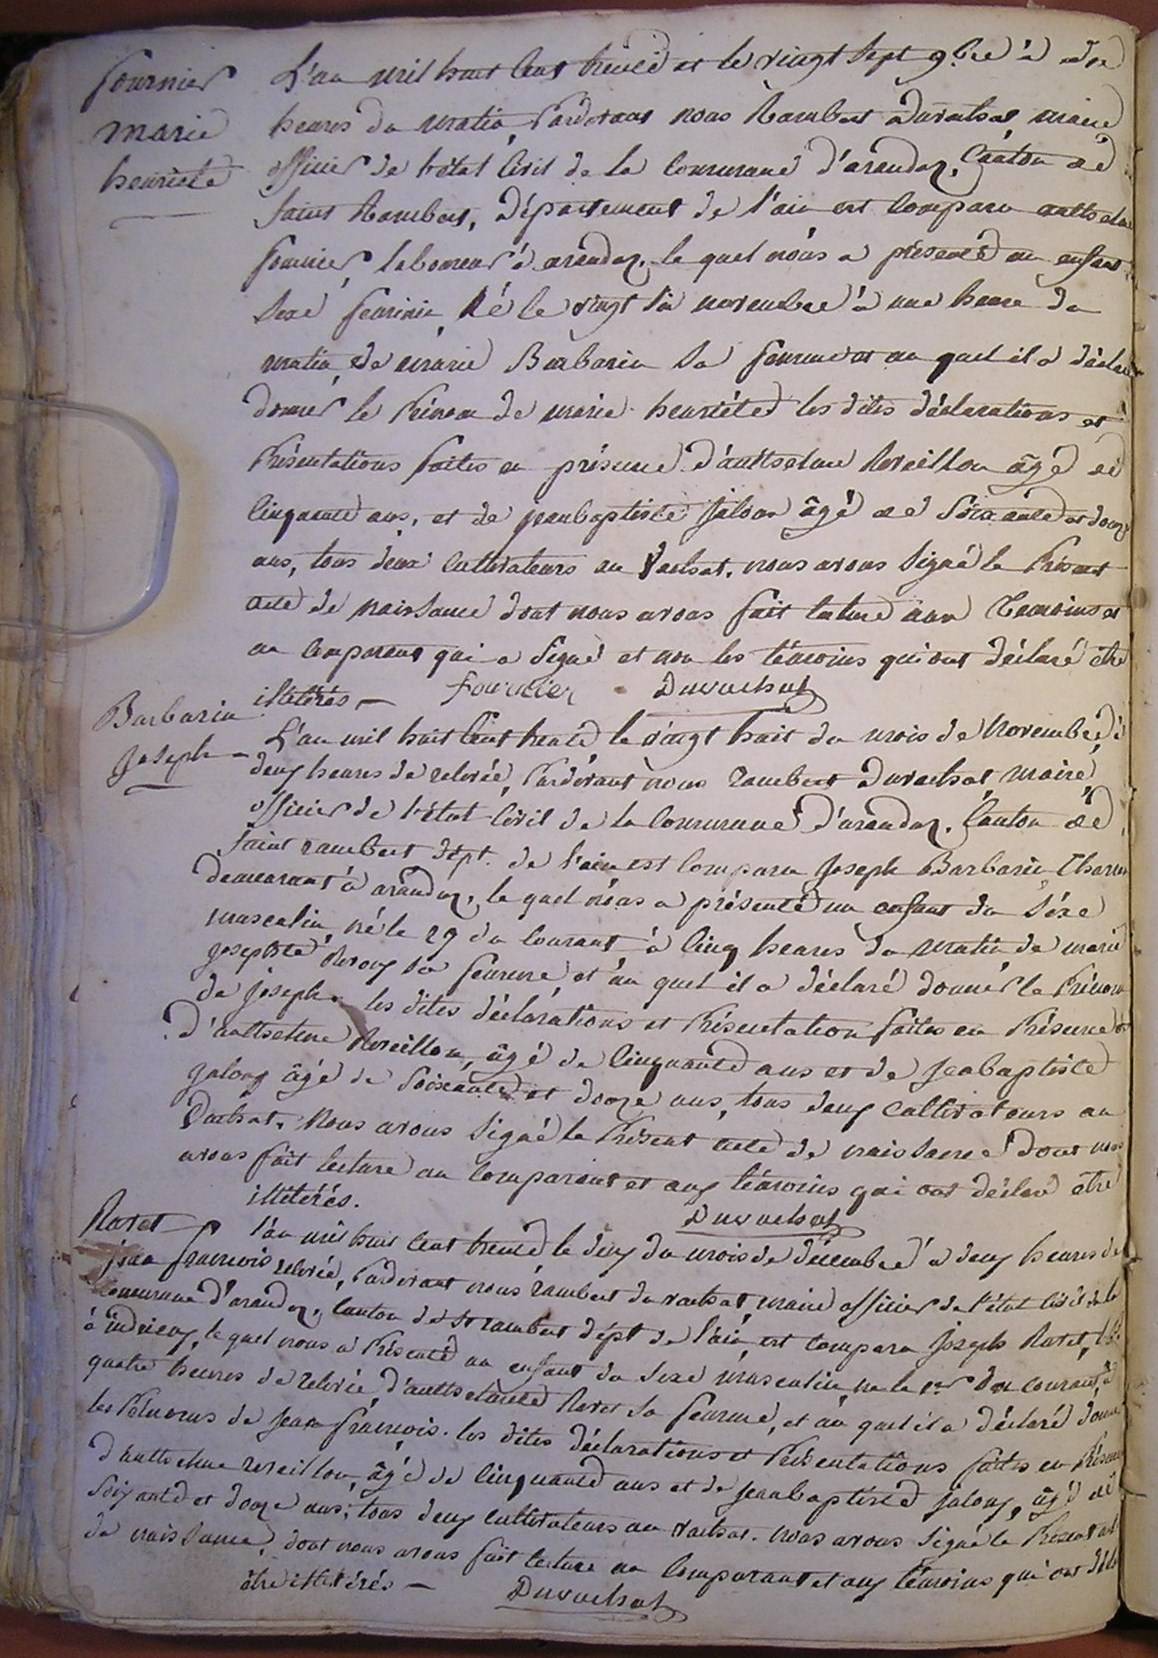 fournier
marie
henriete
L'an mil huit cent trente et le vingt sept 9.bre à dix
heures du matin, Pardevant nous Rambert Duvachat maire
officier de l'état Civil de la Commune d'arandaz, Canton de
Saint Rambert, Département de l'ain est comparu anthelme
fournier, laboureur à arandaz, le quel nous a présenté un enfant
sexe feminin, Né le vingt six novembre à une heure du
matin, de marie Barbarin sa femme et au quel il a déclaré
donner le Prénom de marie henriéte les dites déclarations et
Présentations faites en présence d'anthelme Reveillon âgé de
cinquante ans, et de jeanbaptiste jalong âgé de Soixante et douze
ans, tous deux cultivateurs au Vachat. nous avons Signé le Présent
acte de naissance dont nous avons fait lecture aux Temoins et
au comparant qui a Signé et non les témoins qui ont déclaré être
illitérés — fournier Duvachat
Barbarin
Joseph —
L'an mil huit cent trente le vingt huit du mois de Novembre, à
deux heures de relevée, Pardevant nous rambert Duvachat, Maire,
officier de l'état Civil de la Commune d'arandaz, Canton de
Saint rambert dépt. de l'ain est comparu Joseph Barbarin
demeurant à arandaz, le quel nous a présenté un enfant du séxe
masculin, né le 27 du courant à cinq heures du matin de marie
josephte sa femme, et au quel il a déclaré donner le Prénom
de joseph. les dites déclarations et Présentation faites en Présence
d'anthelme Reveillon, âgé de cinquante ans et de jeabaptiste
jalong âgé de soixante et douze ans, tous deux cultivateurs au
Vachat. Nous avons Signé le Présent acte de naissance dont nous
avons fait lecture au comparant et aux témoins qui ont déclaré être
illitérés. Duvachat
Ravet
jean françois
l'an mil huit cent trente le deux du mois de décembre à deux heures de
relevée, Pardevant nous rambert duvachat, maire officier de l'état Civil de la
Commune d'arandaz, Canton de St rambert dépt de l'ain, est comparu Joseph Ravet,
à indrieux, le quel nous a Présenté un enfant du sexe masculin, né le 1er du courant, à
quatre heures de relevée, d'anthelmete Ravet sa femme, et au quel il a déclaré donner
les Prénoms de jean françois. les dites déclarations et Présentations faites en Présence
d'anthelme reveillon, âgé de cinquante ans et de jeanbaptiste jalong, âgé de
Soixante et douze ans, tous deux cultivateurs au vachat. nous avons signé le Présent acte
de naissance, dont nous avons fait lecture au comparant et aux témoins qui ont déclaré
être illitérés — Duvachat